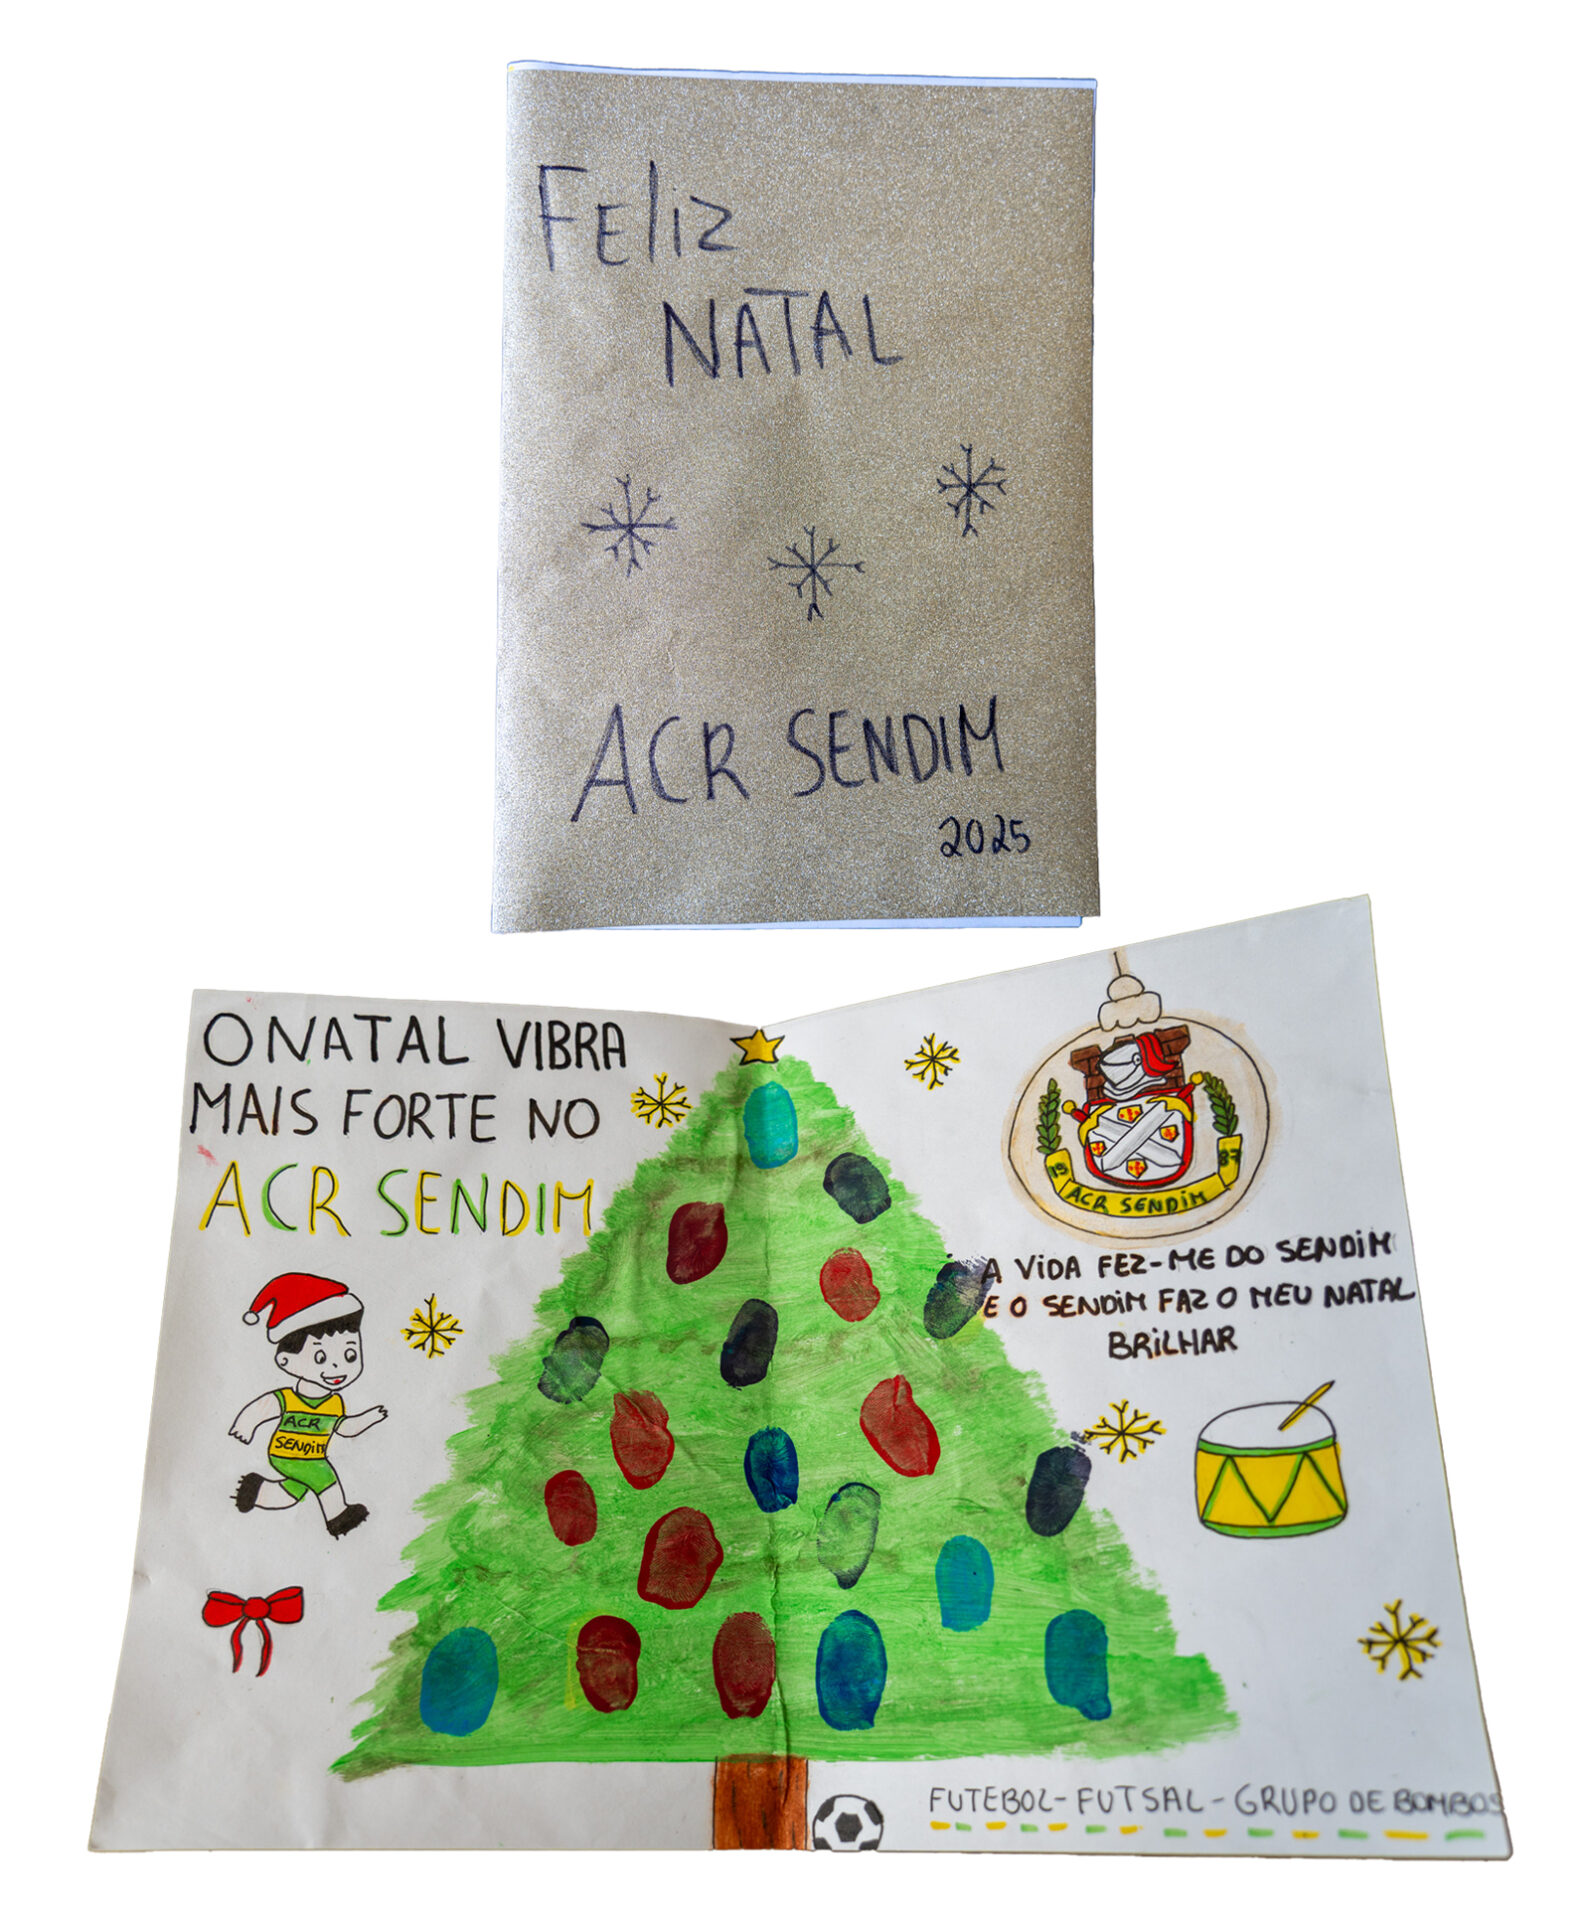 Feliz
NATAL
ACR SENDIM
2025
O NATAL VIBRA
MAIS FORTE NO
ACR SENDIM
ACR
SENDIM
19 87
ACR SENDIM
A VIDA FEZ-ME DO SENDIM
E O SENDIM FAZ O MEU NATAL
BRILHAR
FUTEBOL - FUTSAL - GRUPO DE BOMBOS